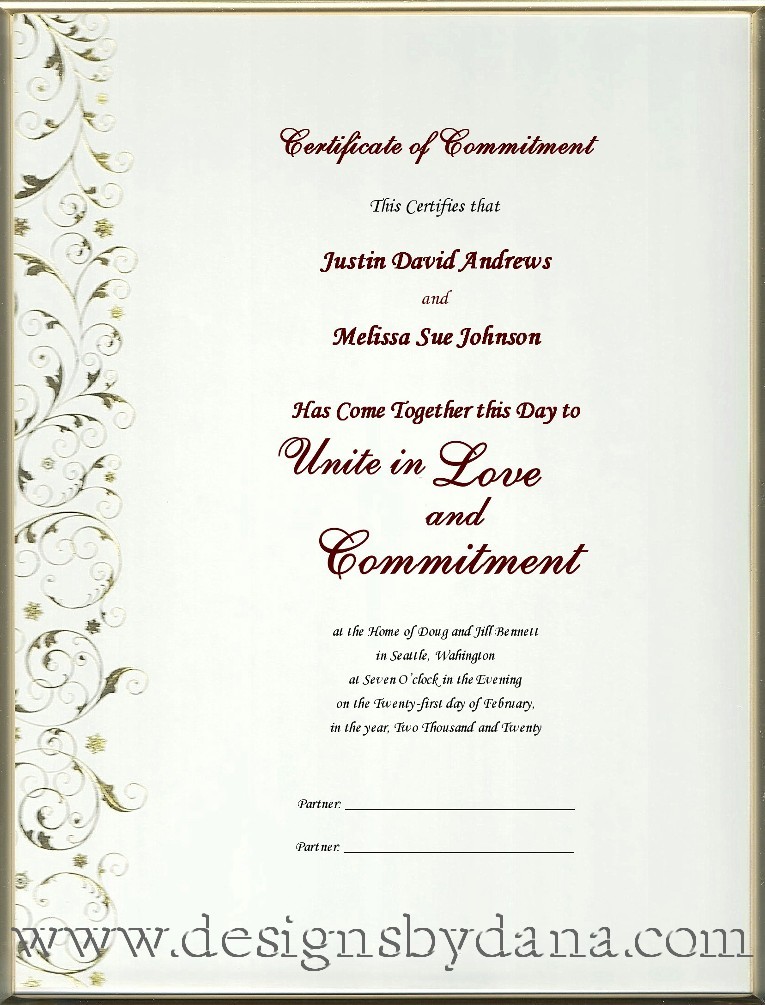 Certificate of Commitment
This Certifies that
Justin David Andrews
and
Melissa Sue Johnson
Has Come Together this Day to
Unite in Love
and
Commitment
at the Home of Doug and Jill Bennett
in Seattle, Wahington
at Seven O'clock in the Evening
on the Twenty-first day of February,
in the year, Two Thousand and Twenty
Partner: ______________________________
Partner: ______________________________
www.designsbydana.com